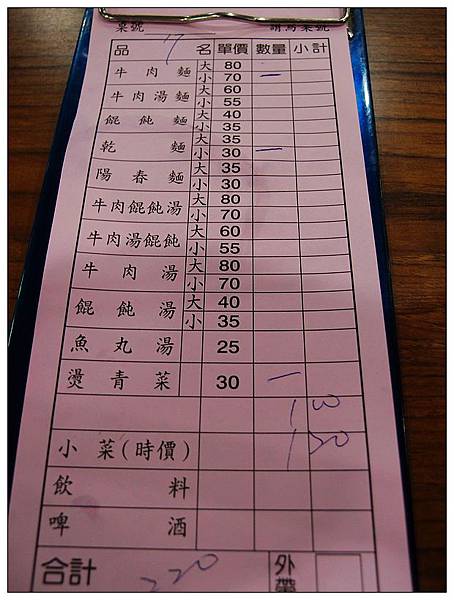 桌號 請寫桌號
17
品名 單價 數量 小計
牛肉麵 大 80
小 70 一
牛肉湯麵 大 60
小 55
餛飩麵 大 40
小 35
乾麵 大 35
小 30 一
陽春麵 大 35
小 30
牛肉餛飩湯 大 80
小 70
牛肉湯餛飩 大 60
小 55
牛肉湯 大 80
小 70
餛飩湯 大 40
小 35
魚丸湯 25
燙青菜 30 一
小菜(時價) 130
飲料
啤酒
合計 220 外帶